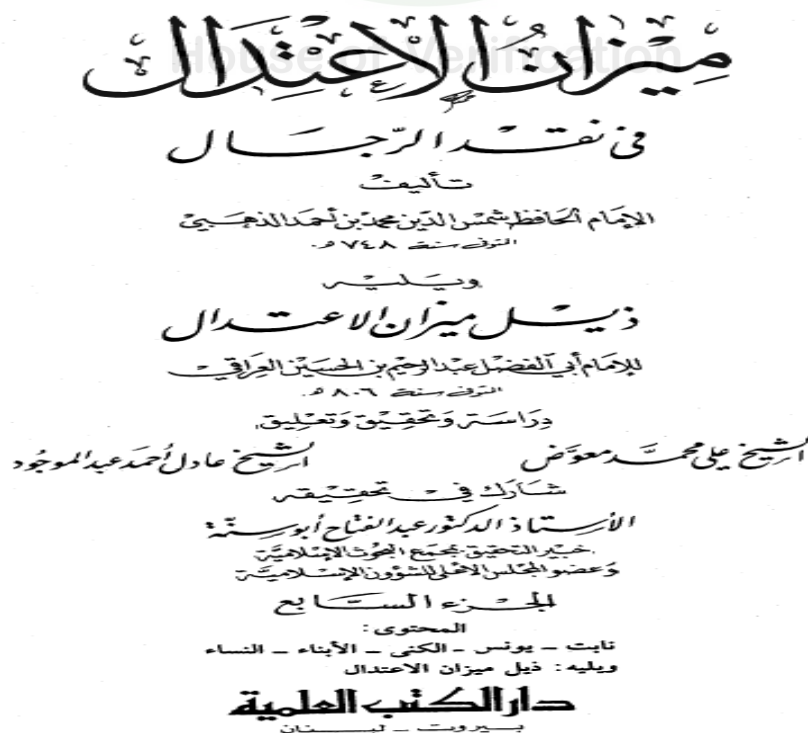 House of Verification
ميزان الاعتدال
في نقد الرجال
تأليف
الإمام الحافظ شمس الدين محمد بن أحمد الذهبي
المتوفى سنة ٧٤٨ هـ
ويليه
ذيل ميزان الاعتدال
للإمام أبي الفضل عبد الرحيم بن الحسين العراقي
المتوفى سنة ٨٠٦ هـ
دراسة وتحقيق وتعليق
الشيخ علي محمد معوض الشيخ عادل أحمد عبد الموجود
شارك في تحقيقه
الأستاذ الدكتور عبد الفتاح أبو سنة
خبير التحقيق بمجمع البحوث الإسلامية
وعضو المجلس الأعلى للشؤون الإسلامية
الجزء السابع
المحتوى:
نابت - يونس - الكنى - الأبناء - النساء
ويليه: ذيل ميزان الاعتدال
دار الكتب العلمية
بيروت - لبنان